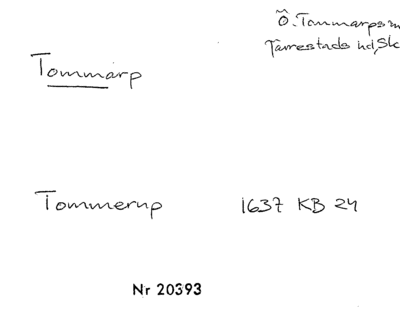 Ö. Tommarps sn
Järrestads hd, Sk
Tommarp
Tommerup 1637 KB 24
Nr 20393